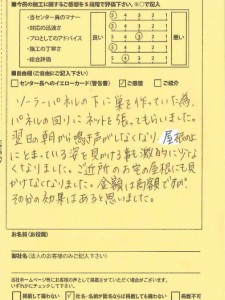 ●今回の施工に関するご感想を5段階で評価下さい。※○で記入
・当センター員のマナー
・対応の迅速さ
・プロとしてのアドバイス
・施工の丁寧さ
・総合評価
良い
5 4 3 2 1
5 4 3 2 1
5 4 3 2 1
5 4 3 2 1
5 4 3 2 1
悪い
●自由欄(ご自由にご記入下さい)
□センター長へのイエローカード(警告書) ☑ご感想 □ご紹介
ソーラーパネルの下に巣を作っていた為、
パネルの回りにネットを張ってもらいました。
翌日の朝から鳴き声がしなくなり、屋根の
上にとまっている姿を見かける事も激的に少な
くなりました。ご近所のお宅の屋根にも見
かけなくなりました。金額は高額ですが
その分の効果はあると思いました。
お名前(お役職)
御社名(法人のお客様のみご記入下さい)
当社ホームページ等にお客様の声として掲載させていただく場合がございます。
いずれかにチェックして下さい。
□掲載して構わない
社名・名前が匿名ならば掲載しても構わない
□掲載不可